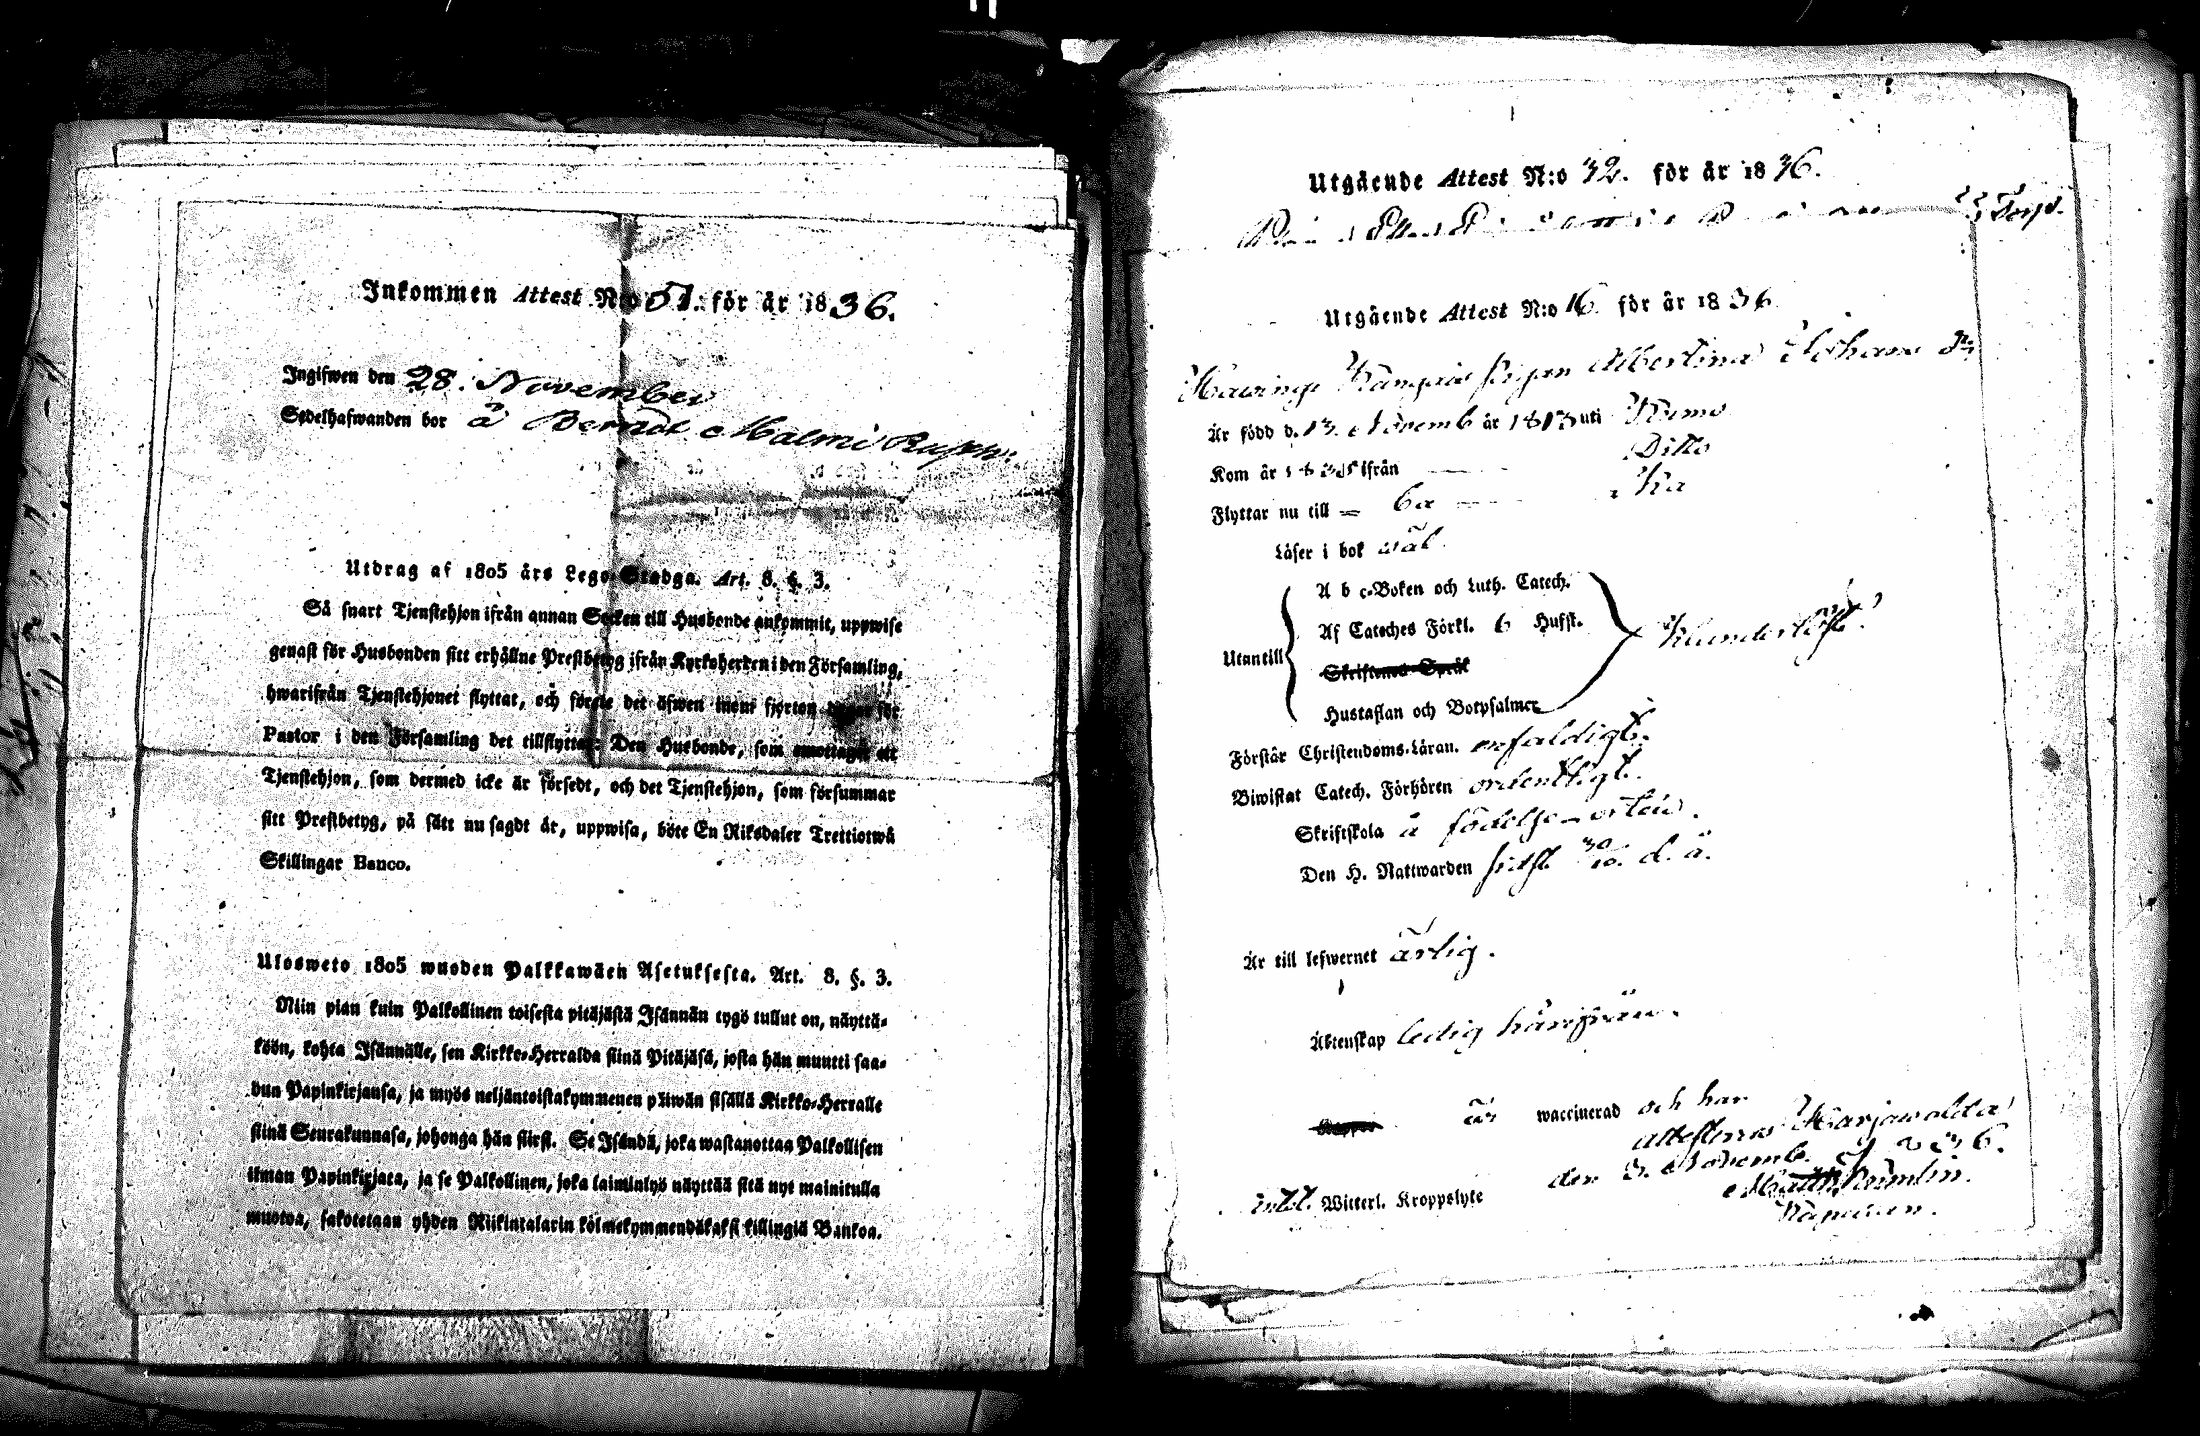 Inkommen Attest N:o 51. för år 1836.
Ingifwen den 28. November
Sedelhafwanden bor å Berndt Malmi Rusth:
Utdrag af 1805 års Lego-Stadga. Art. 8. §. 3.
Så snart Tjenstehjon ifrån annan Socken till Husbonde ankommit, uppwise
genast för Husbonden sitt erhållne Prestbetyg ifrån Kyrkoherden i den Församling,
hwarifrån Tjenstehjonet flyttat, och förete det äfwen inom fjorton dagar för
Pastor i den Församling det tillflyttat: Den Husbonde, som emottager ett
Tjenstehjon, som dermed icke är försedt, och det Tjenstehjon, som försummar
sitt Prestbetyg, på sätt nu sagdt är, uppwisa, böte En Riksdaler Trettiotwå
Skillingar Banco.
Ulosweto 1805 wuoden Palkkawäen Asetuksesta. Art. 8. §. 3.
Niin pian kuin Palkollinen toisesta pitäjästä Isännän tygö tullut on, näyttä-
köön, kohta Isännälle, sen Kirkko-Herralda siinä Pitäjäsä, josta hän muutti saa-
dun Papinkirjansa, ja myös neljäntoistakymmenen päiwän sisällä Kirkko-Herralle
siinä Seurakunnasa, johonga hän siirsi. Se Isändä, joka wastanottaa Palkollisen
ilman Papinkirjata, ja se Palkollinen, joka laiminlyö näyttää sitä nyt mainitulla
muotoa, sakotetaan yhden Riikintalarin kolmekymmendäkaksi killingiä Bankoa.
Utgående Attest N:o 32. för år 1836.
Torp.
Utgående Attest N:o 16. för år 1836
Pigan Albertina Johans dr
Är född d. 13. Novemb år 1813 uti Kumo
Kom år 1835 ifrån Ditto
Flyttar nu till
Läser i bok wäl.
A b c-Boken och Luth. Catech.
Af Cateches Förkl. 6 Hufst.
Utantill
Skriftenes Språk
Hustaflan och Botpsalmer
Förstår Christendoms-Läran. enfaldigt.
Biwistat Catech. Förhören ordentligt.
Skriftskola å födelse-orten.
Den H. Nattwarden sidst 30/10. d. å.
Är till lefwernet ärlig.
Äktenskap ledig härifrån.
Koppor är waccinerad och har
attesteras Harjawalda
den 3. Novemb. 1836.
Witterl. Kroppslyte